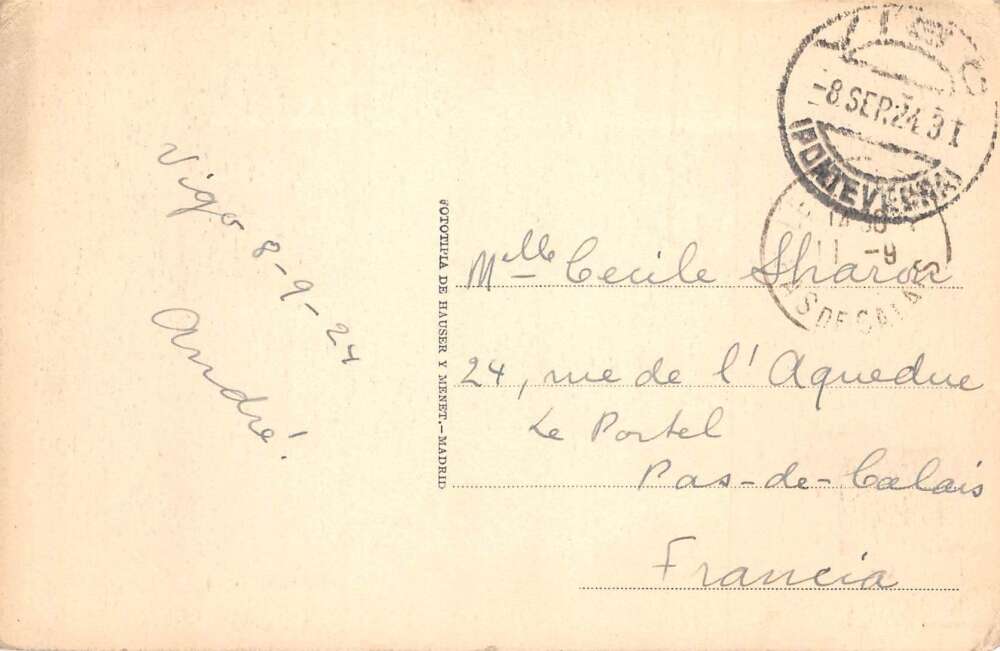 Vigo 8-9-24
André.
FOTOTIPIA DE HAUSER Y MENET.-MADRID
VIGO
-8 SEP.24.3T
(PONTEVEDRA)
11 -9
PAS DE CALAIS
Mlle Cecile Sharon
24, rue de l'Aqueduc
Le Portel
Pas-de-Calais
Francia